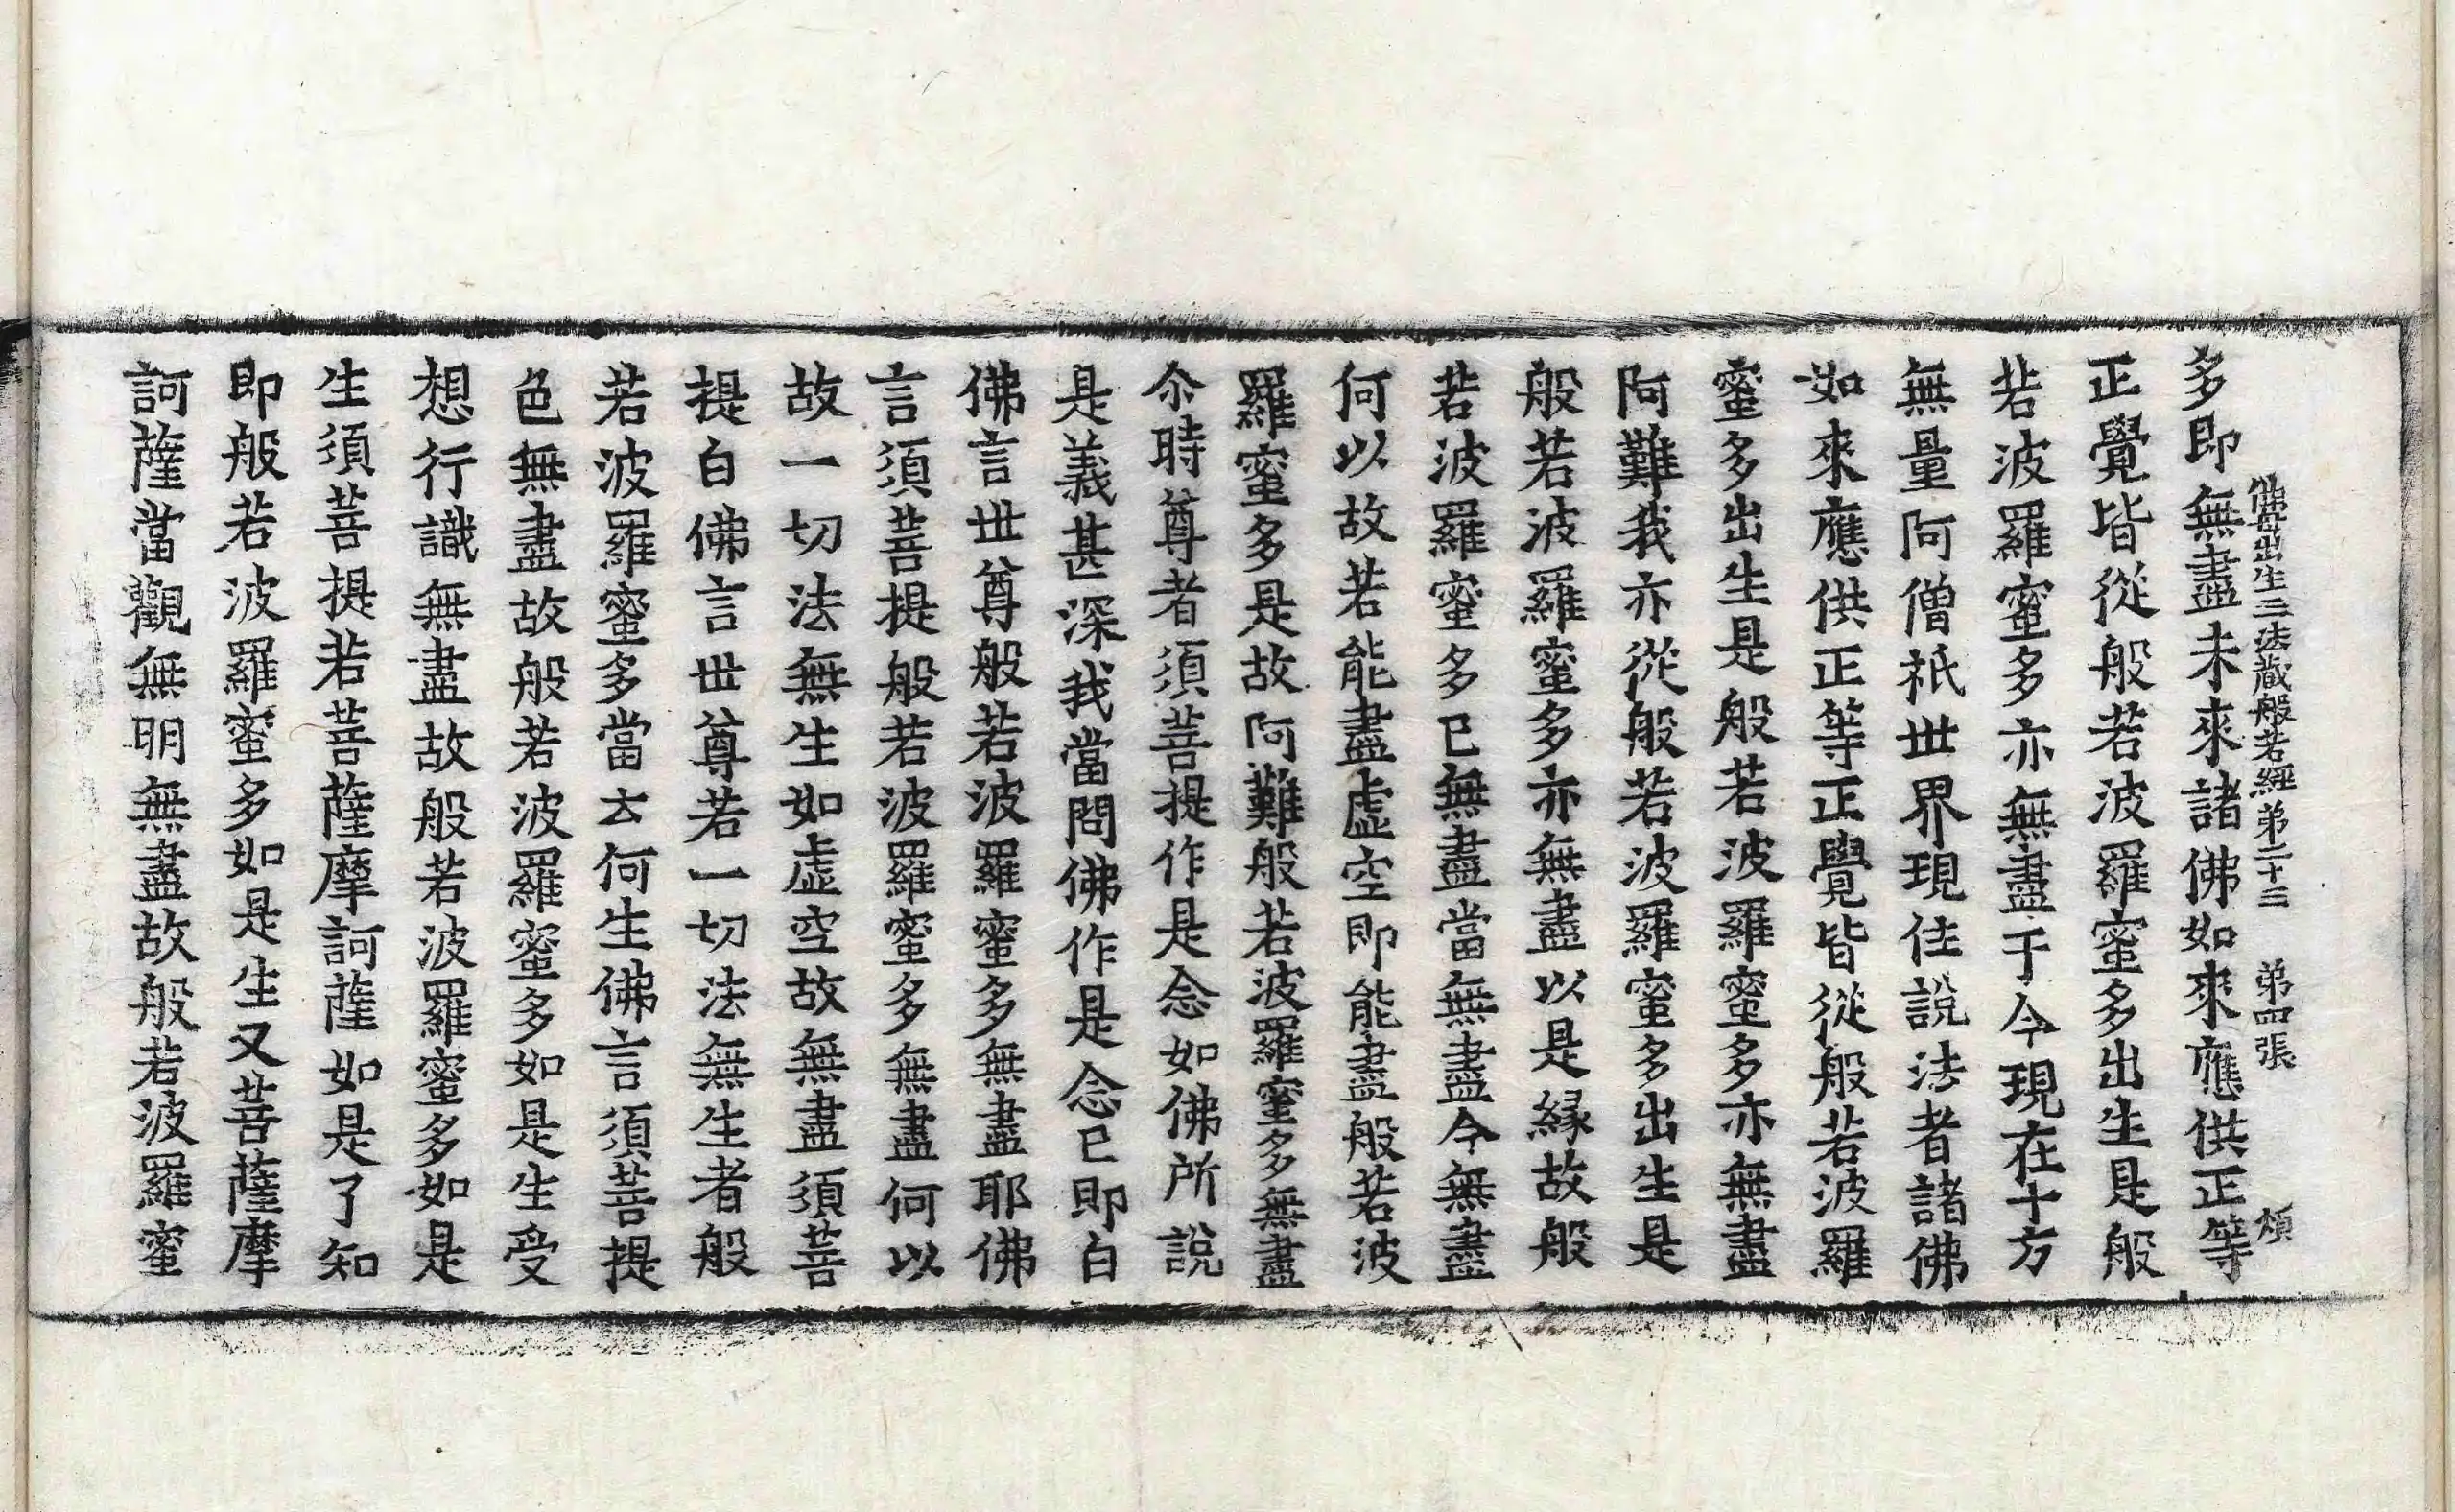 佛母出生三法藏般若經第二十三 第四張 煩
多即無盡未來諸佛如來應供正等
正覺皆從般若波羅蜜多出生是般
若波羅蜜多亦無盡于今現在十方
無量阿僧祇世界現住說法者諸佛
如來應供正等正覺皆從般若波羅
蜜多出生是般若波羅蜜多亦無盡
阿難我亦從般若波羅蜜多出生是
般若波羅蜜多亦無盡以是緣故般
若波羅蜜多已無盡當無盡今無盡
何以故若能盡虛空即能盡般若波
羅蜜多是故阿難般若波羅蜜多無盡
尒時尊者須菩提作是念如佛所說
是義甚深我當問佛作是念已即白
佛言世尊般若波羅蜜多無盡耶佛
言須菩提般若波羅蜜多無盡何以
故一切法無生如虛空故無盡須菩
提白佛言世尊若一切法無生者般
若波羅蜜多當云何生佛言須菩提
色無盡故般若波羅蜜多如是生受
想行識無盡故般若波羅蜜多如是
生須菩提若菩薩摩訶薩如是了知
即般若波羅蜜多如是生又菩薩摩
訶薩當觀無明無盡故般若波羅蜜